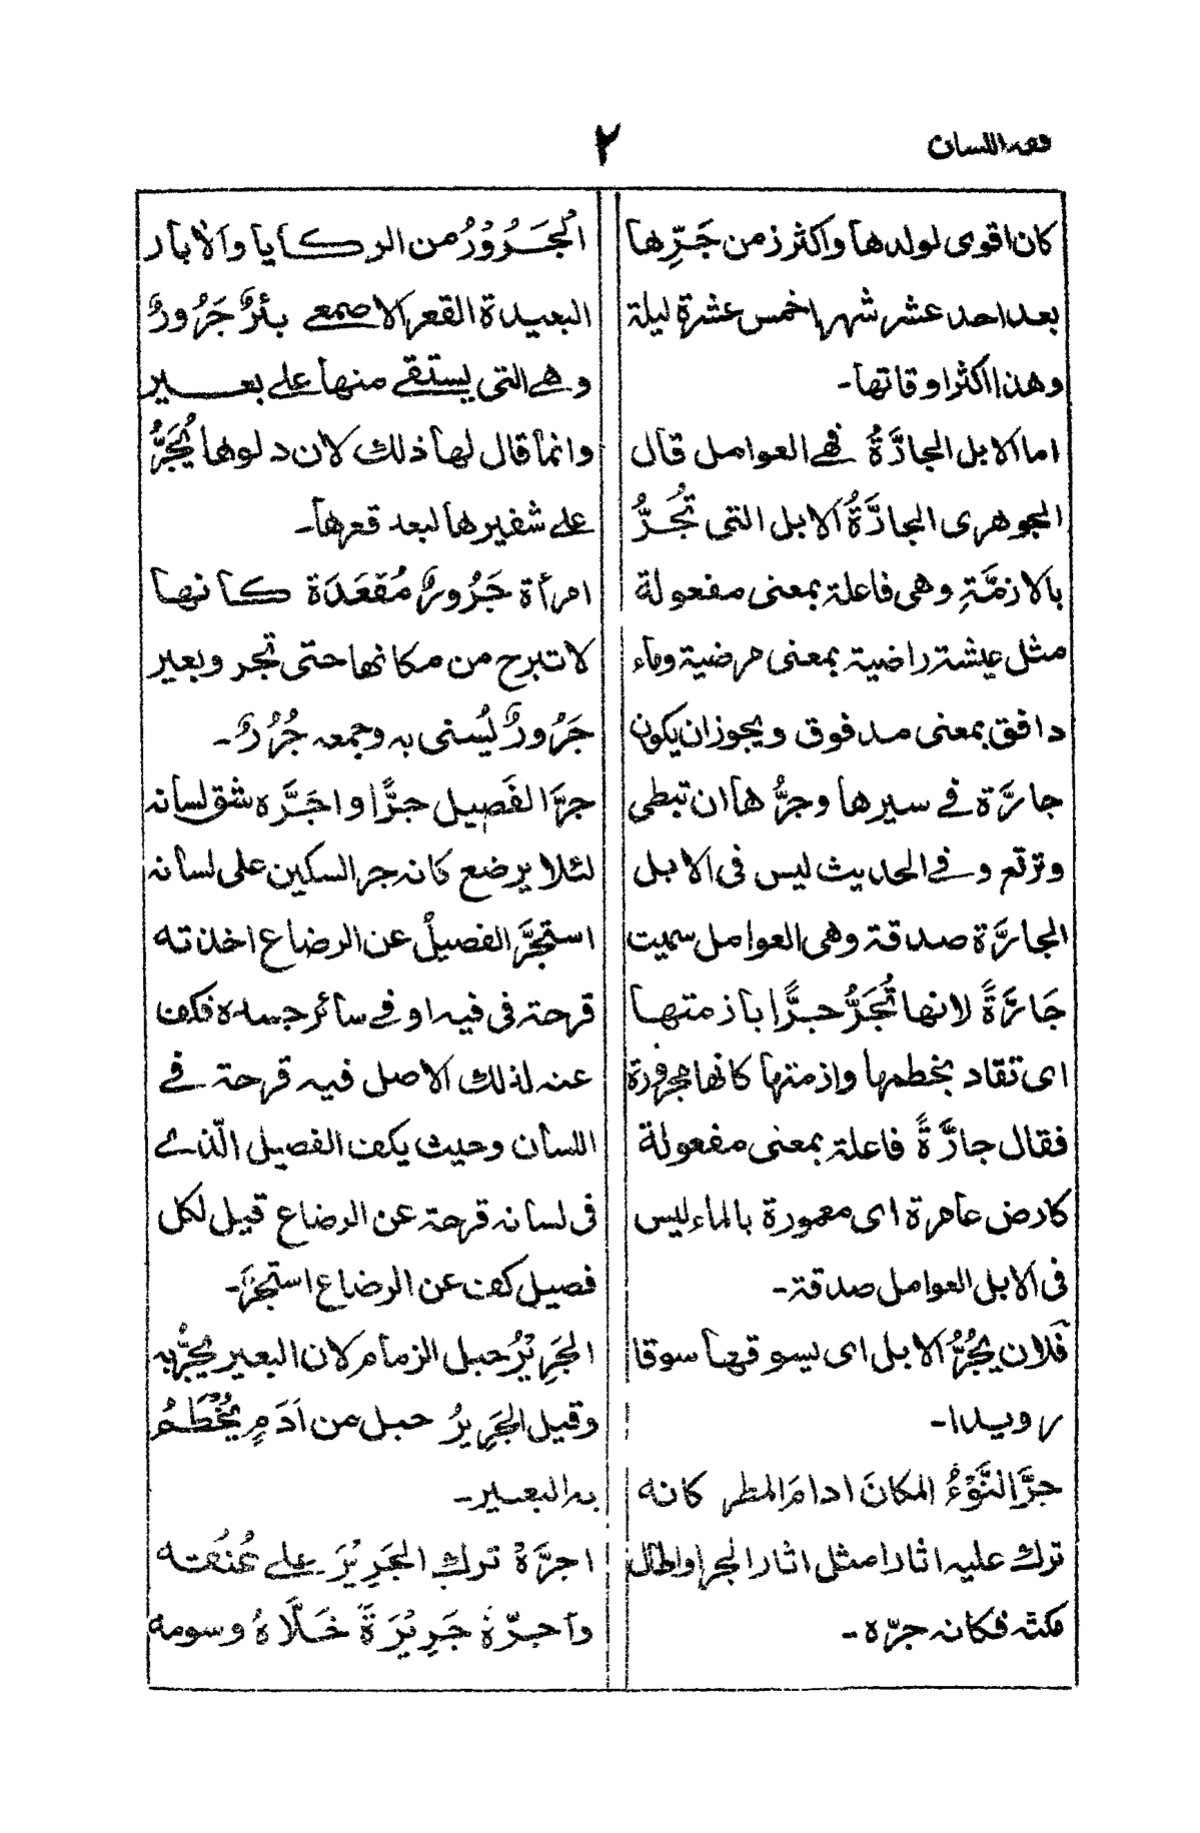 فقه اللسان
٢
كان اقوى لولدها واكثر زمن جَرِّها
بعد احد عشر شهرا خمس عشرة ليلة
وهذا اكثر اوقاتها۔
اما الابل الجارَّةُ فهي العوامل قال
الجوهرى الجارَّةُ الابل التى تُجَرُّ
بالازمَّةِ وهى فاعلة بمعنى مفعولة
مثل عيشة راضية بمعنى مرضية وماء
دافق بمعنى مدفوق ويجوز ان يكون
جائرَّة في سيرها وجرُّها ان تبطى
وترتع وفي الحديث ليس فى الابل
الجائرَّة صدقة وهى العوامل سميت
جَائرَّةً لانها تُجَرُّ جرًّا بازمتها
اى تقاد بخطمها وازمتها كانها مجرورة
فقال جارَّةً فاعلة بمعنى مفعولة
كارض عامرة اى معمورة بالماء ليس
فى الابل العوامل صدقة۔
فَلان يَجُرُّ الابل اى يسوقها سوقا
رويدا۔
جرَّ النَّوْءُ المكانَ ادامَ المطر كانه
ترك عليه اثارا مثل اثار الجر اواطال
مكثه فكانه جرّه۔
الْجَرُوْرُ من الركايا والابار
البعيدة القعر الاصمعي بئرٌ جَرُورٌ
وهي التى يستقي منها علي بعير
وانما قال لها ذلك لان دلوها يُجَرُّ
علي شفيرها لبعد قعرها۔
امرأة جَرُورٌ مُقْعَدَة كانها
لا تبرح من مكانها حتى تجر وبعير
جَرُورٌ يُسنى به وجمعه جُرُرٌ۔
جرّ الفَصِيل جرًّا واجَرَّه شق لسانه
لئلا يرضع كانه جر السكين على لسانه
استجرَّ الفصيلُ عن الرضاع اخذته
قرحة فى فيه او في سائر جسده فكف
عنه لذلك الاصل فيه قرحة في
اللسان وحيث يكف الفصيل الّذي
فى لسانه قرحة عن الرضاع قيل لكل
فصيل كف عن الرضاع استجرَّ۔
الجَرِيْرُ حبل الزمام لان البعير يُجَرُّ به
وقيل الجَرِيرُ حبل من اَدَمٍ يُخْطَمُ
به البعير۔
اجرَّهُ ترك الجَرِيْرَ علي عُنُقه
واجرّهُ جَرِيْرَةً خَلَّاهُ وسومه